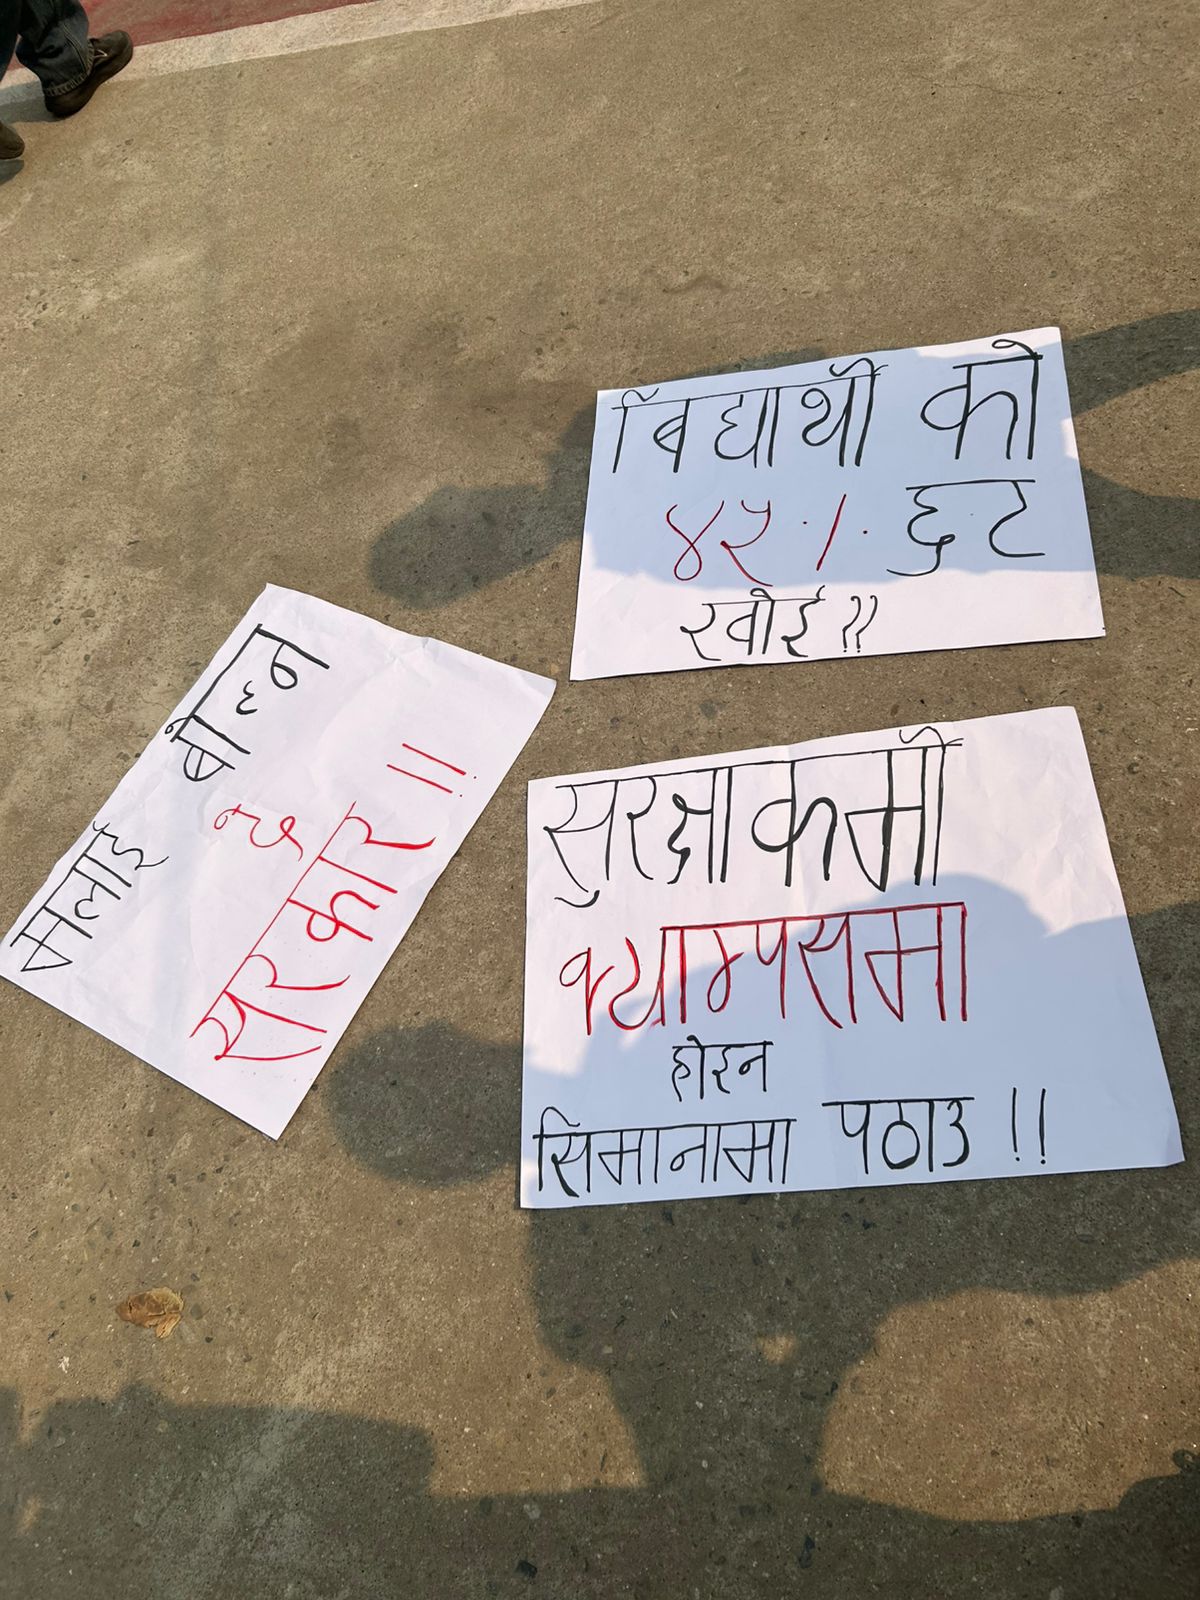 बिद्यार्थी को
४५% छुट
खोई !!
मलाई बाँच्न
दे
सरकार !!
सुरक्षाकर्मी
क्याम्पसमा
होइन
सिमानामा पठाउ !!